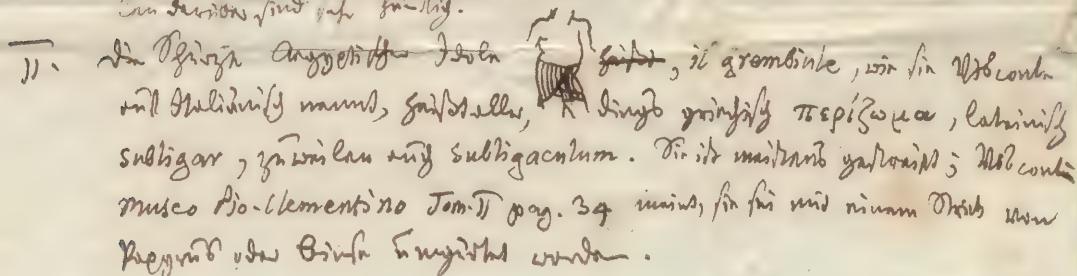 darüber sind sehr
II. die Schürze Aegyptischer Idole heißt, il grembiule, wie sie Visconti
auf Italiänisch nennt, heißt aller, dings griechisch περίζωμα, lateinisch
subligar, zuweilen auch subligaculum. Sie ist meistens gestreift; Visconti
museo Pio-Clementino Tom. II pag. 34 meint, sie sei mit einem Strick von
Papyrus oder Binse umgürtet worden.